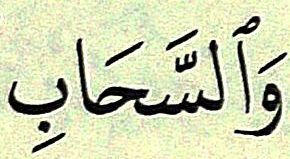 وَٱلسَّحَابِ